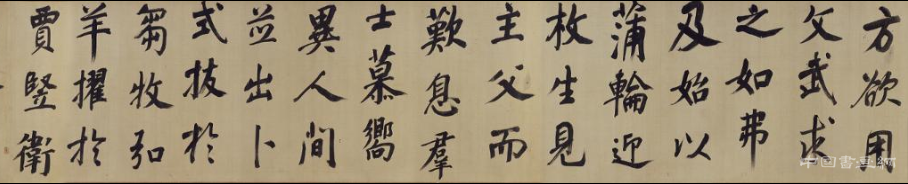 方欲用
文武求
之如弗
及始以
蒲輪迎
枚生見
主父而
歎息羣
士慕嚮
異人間
並出卜
式拔於
芻牧弘
羊擢於
賈豎衛